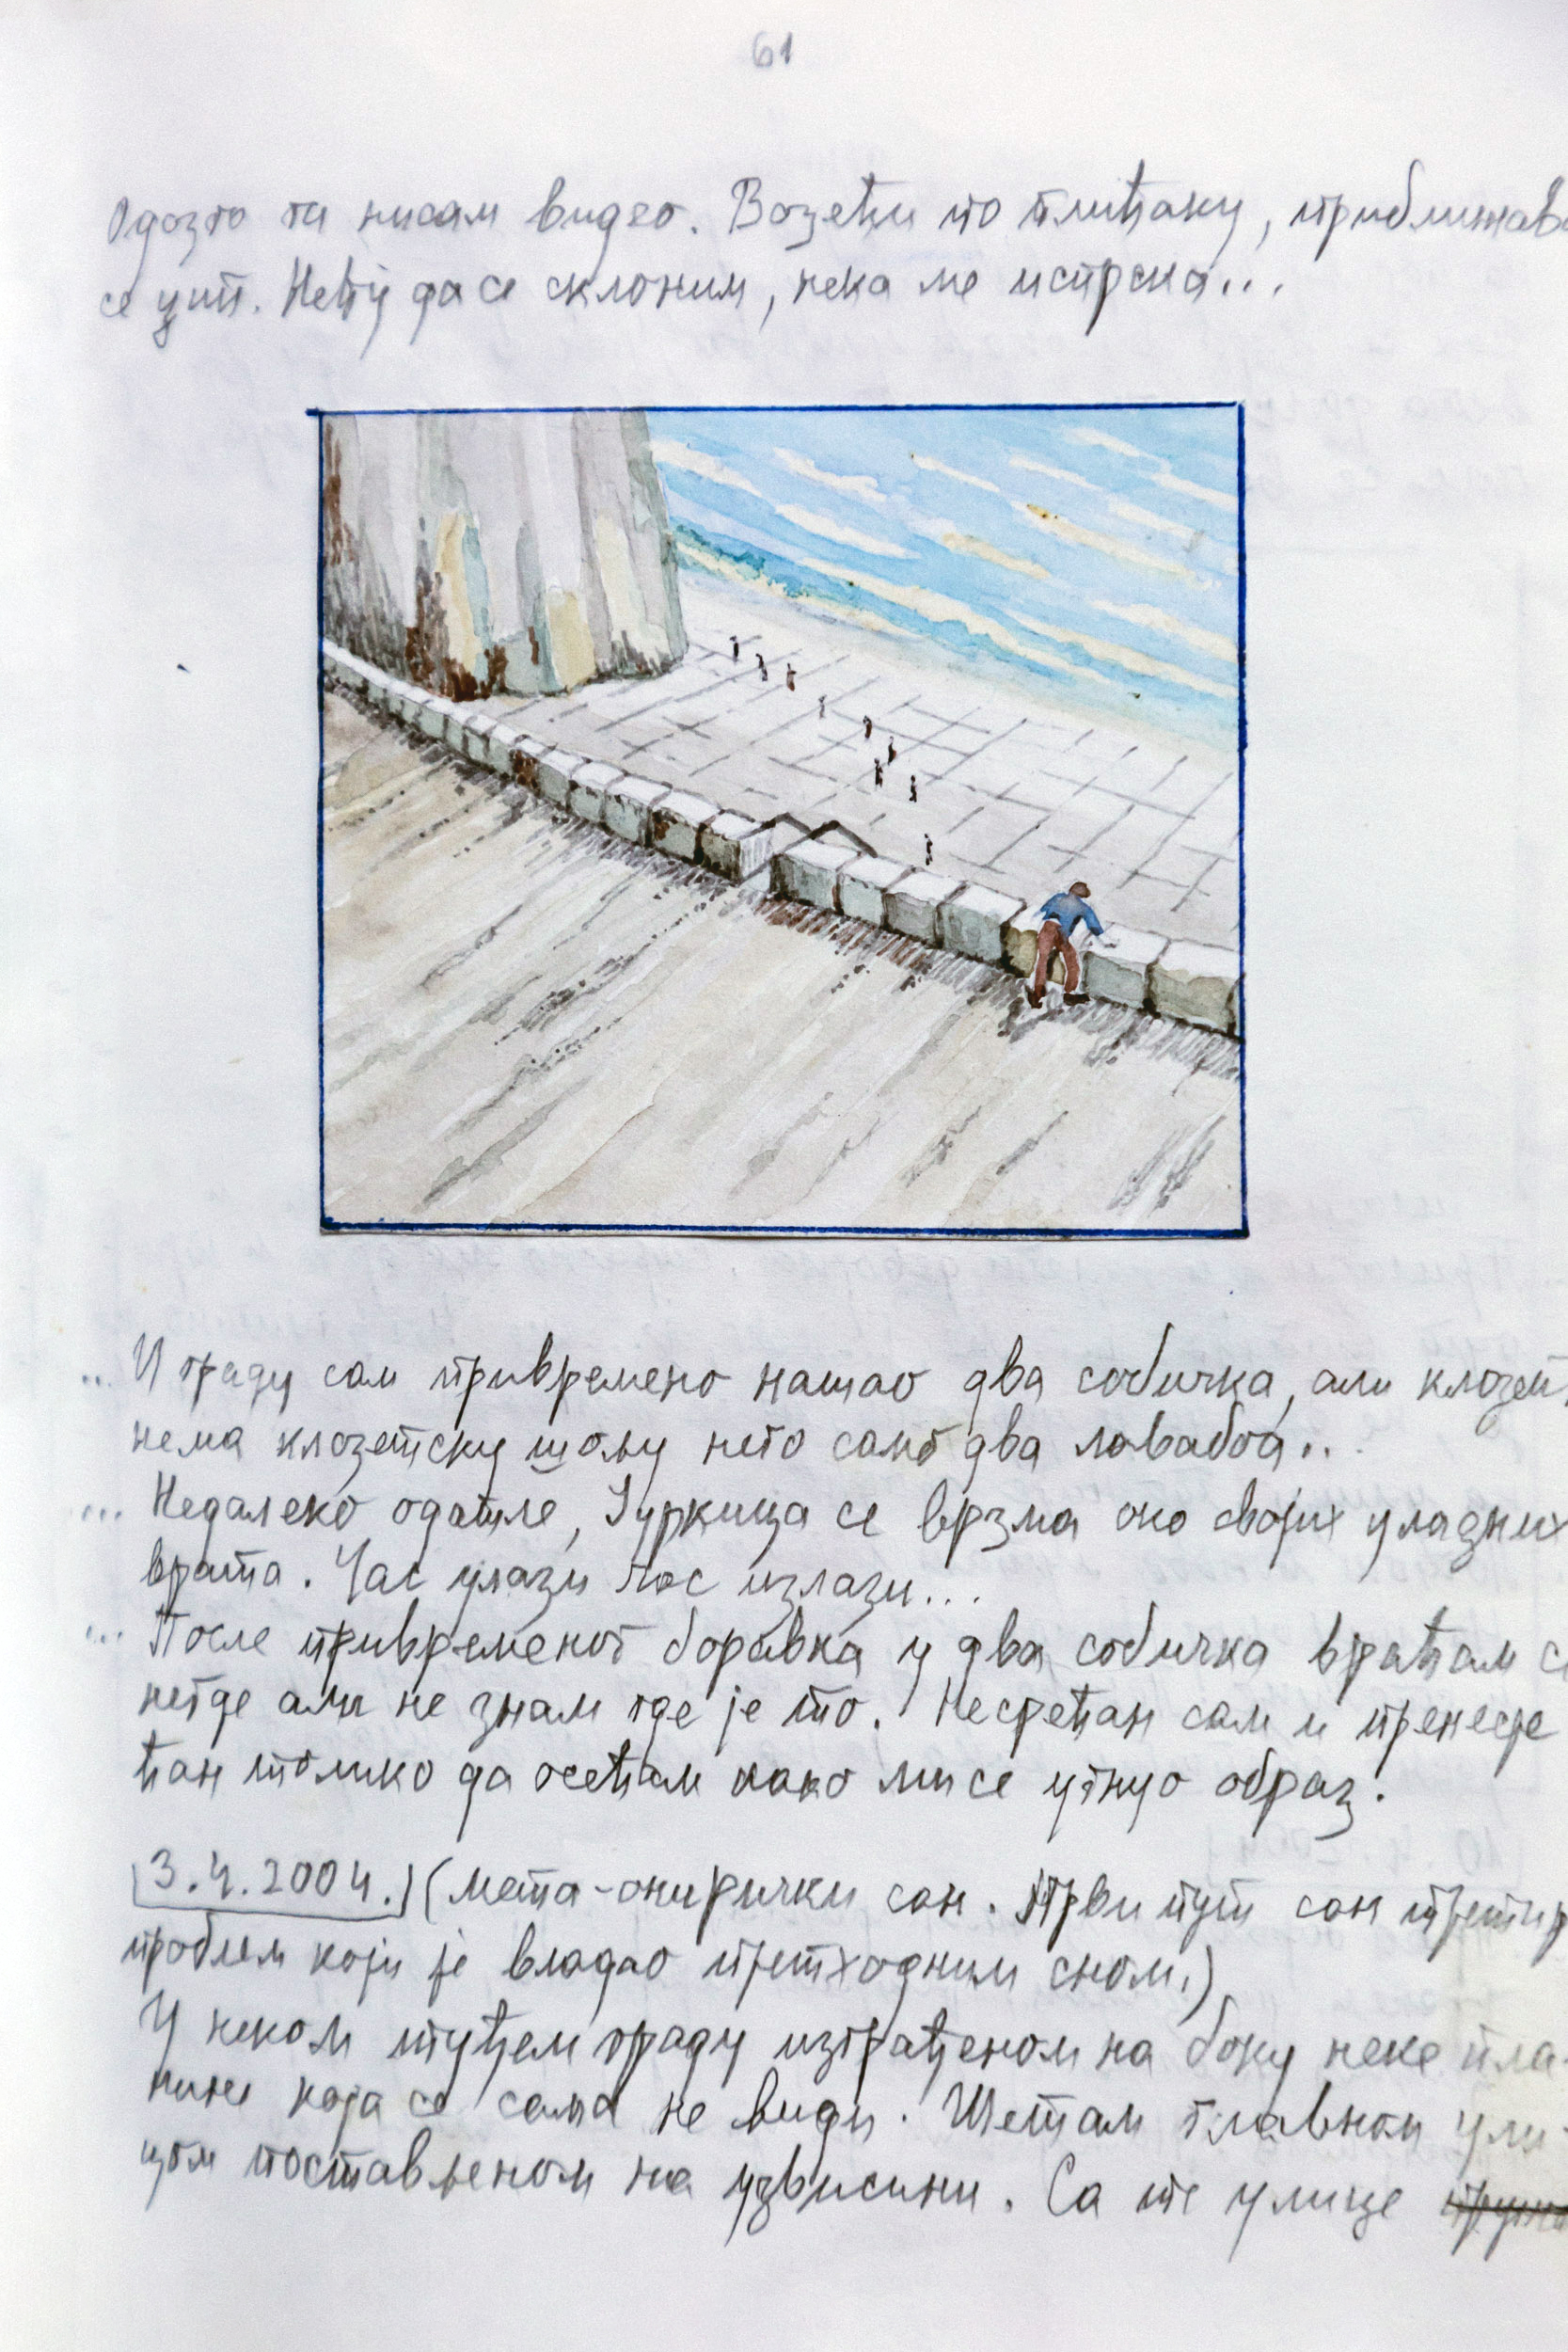 61
Одозго га нисам видео. Возећи по плићаку, приближава
се џип. Нећу да се склоним, нека ме испрска...
... У граду сам привремено нашао два собичка, али клозет
нема клозетску шољу него само два лавабоа...
... Недалеко одатле, Гуркица се врзма око својих улазних
врата. Час улази час излази...
... После привременог боравка у два собичка враћам с
негде али не знам где је то. Несрећан сам и пренесре
ћан толико да осећам како ми се угнуо образ.
3.4.2004. (мета-онирички сан. Први пут сан третир
проблем који је владао претходним сном.)
У неком туђем граду изграђеном на боку неке пла-
нине која се сама не види. Шетам главном ули-
цом постављеном на узвисини. Са те улице